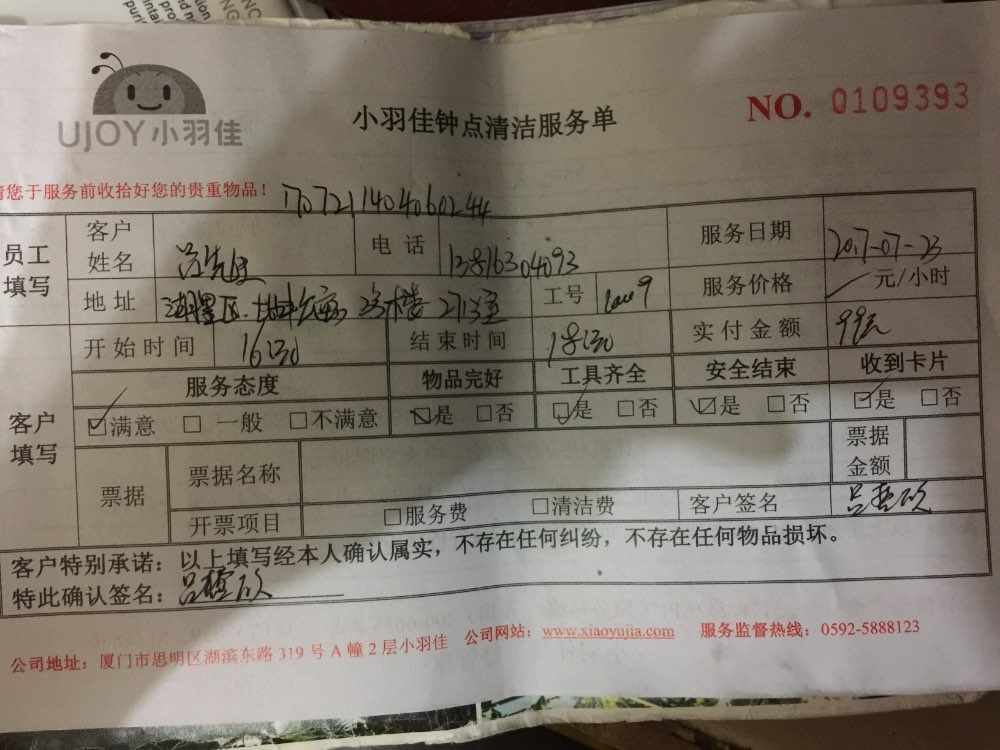 UJOY小羽佳
小羽佳钟点清洁服务单
NO. 0109393
请您于服务前收拾好您的贵重物品！
1707211404060244
员工填写
客户姓名 吕先生
电话 13816304093
服务日期 2017-07-23
地址 湖里区 23楼 2713室
工号
服务价格 元/小时
开始时间 16:30
结束时间 18:30
实付金额 99元
客户填写
服务态度 物品完好 工具齐全 安全结束 收到卡片
☑满意 □一般 □不满意 ☑是 □否 ☑是 □否 ☑是 □否 ☑是 □否
票据 票据名称 票据金额
开票项目 □服务费 □清洁费 客户签名
客户特别承诺：以上填写经本人确认属实，不存在任何纠纷，不存在任何物品损坏。
特此确认签名：
公司地址：厦门市思明区湖滨东路 319 号 A 幢 2 层小羽佳 公司网站：www.xiaoyujia.com 服务监督热线：0592-5888123